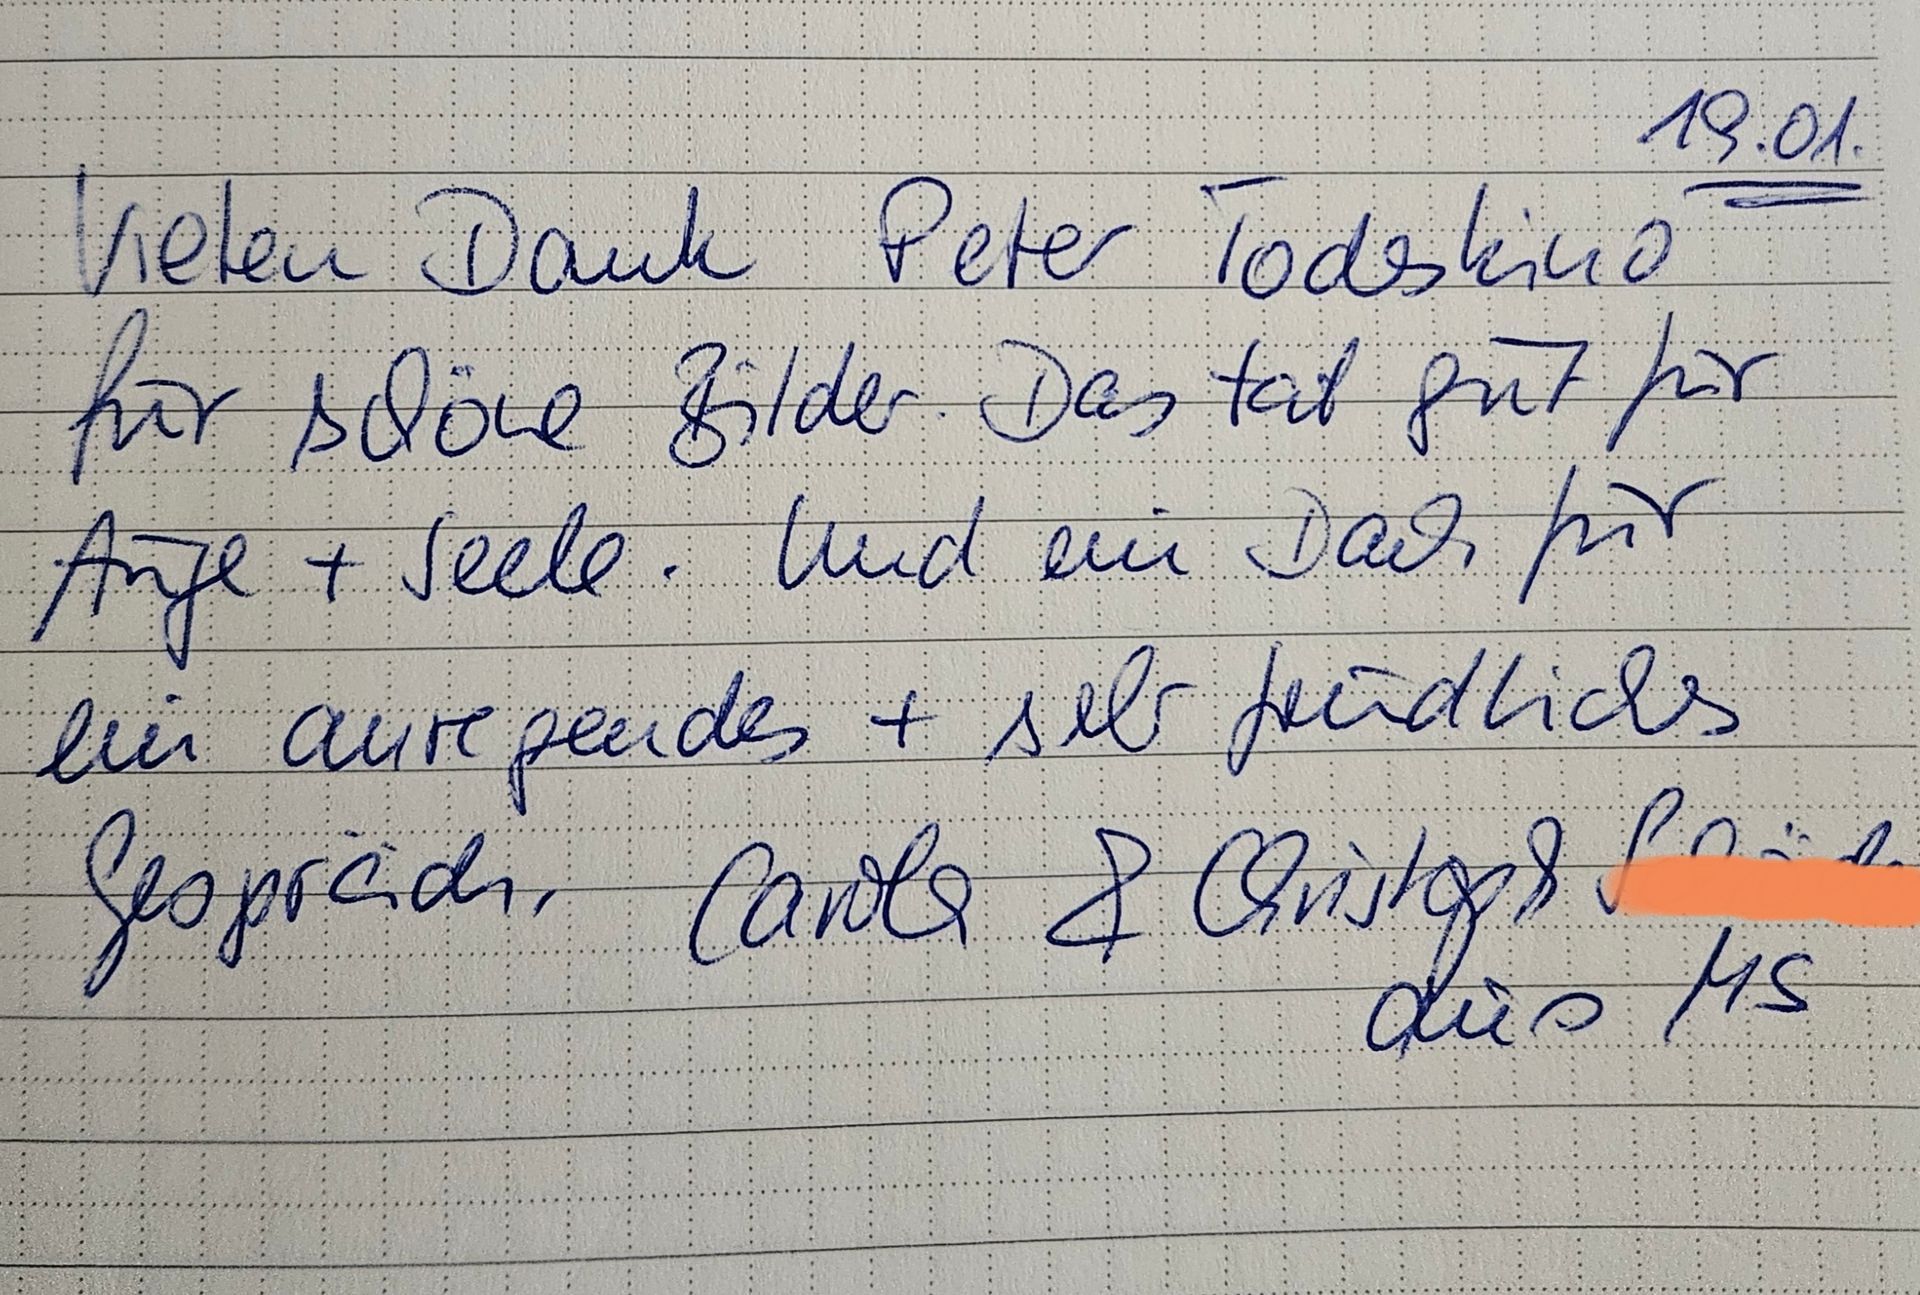 19.01.
Vielen Dank Peter Todeskino
für schöne Bilder. Das tat gut für
Auge + Seele. Und ein Dach für
ein anregendes + sehr freundliches
Gespräch. Carola & Christoph
aus MS